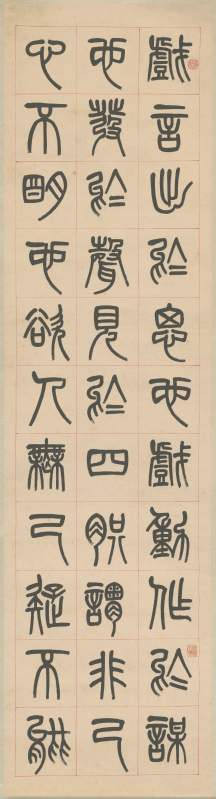 戲言出於思也戲動作於謀
也發於聲見於四胑謂非己
心不明也欲人無己疑不能